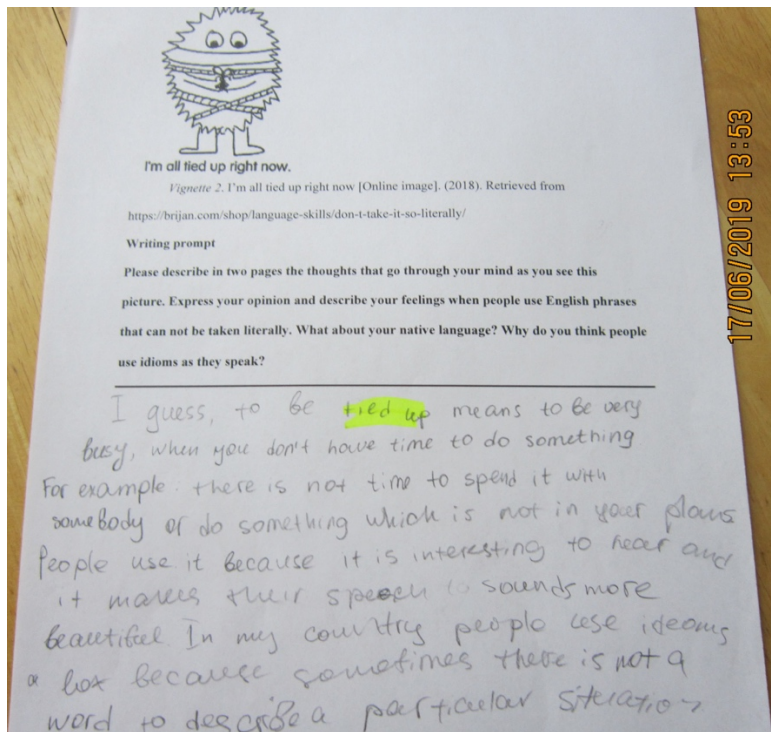 I'm all tied up right now.
Vignette 2. I'm all tied up right now [Online image]. (2018). Retrieved from
https://brijan.com/shop/language-skills/don-t-take-it-so-literally/
Writing prompt
Please describe in two pages the thoughts that go through your mind as you see this
picture. Express your opinion and describe your feelings when people use English phrases
that can not be taken literally. What about your native language? Why do you think people
use idioms as they speak?
I guess, to be tied up means to be very
busy, when you don't have time to do something
For example there is not time to spend it with
somebody or do something which is not in your plans
People use it because it is interesting to hear and
it makes their speech to sounds more
beautiful. In my country people use ideoms
a lot because sometimes there is not a
word to describe a particular situation
17/06/2019 13:53